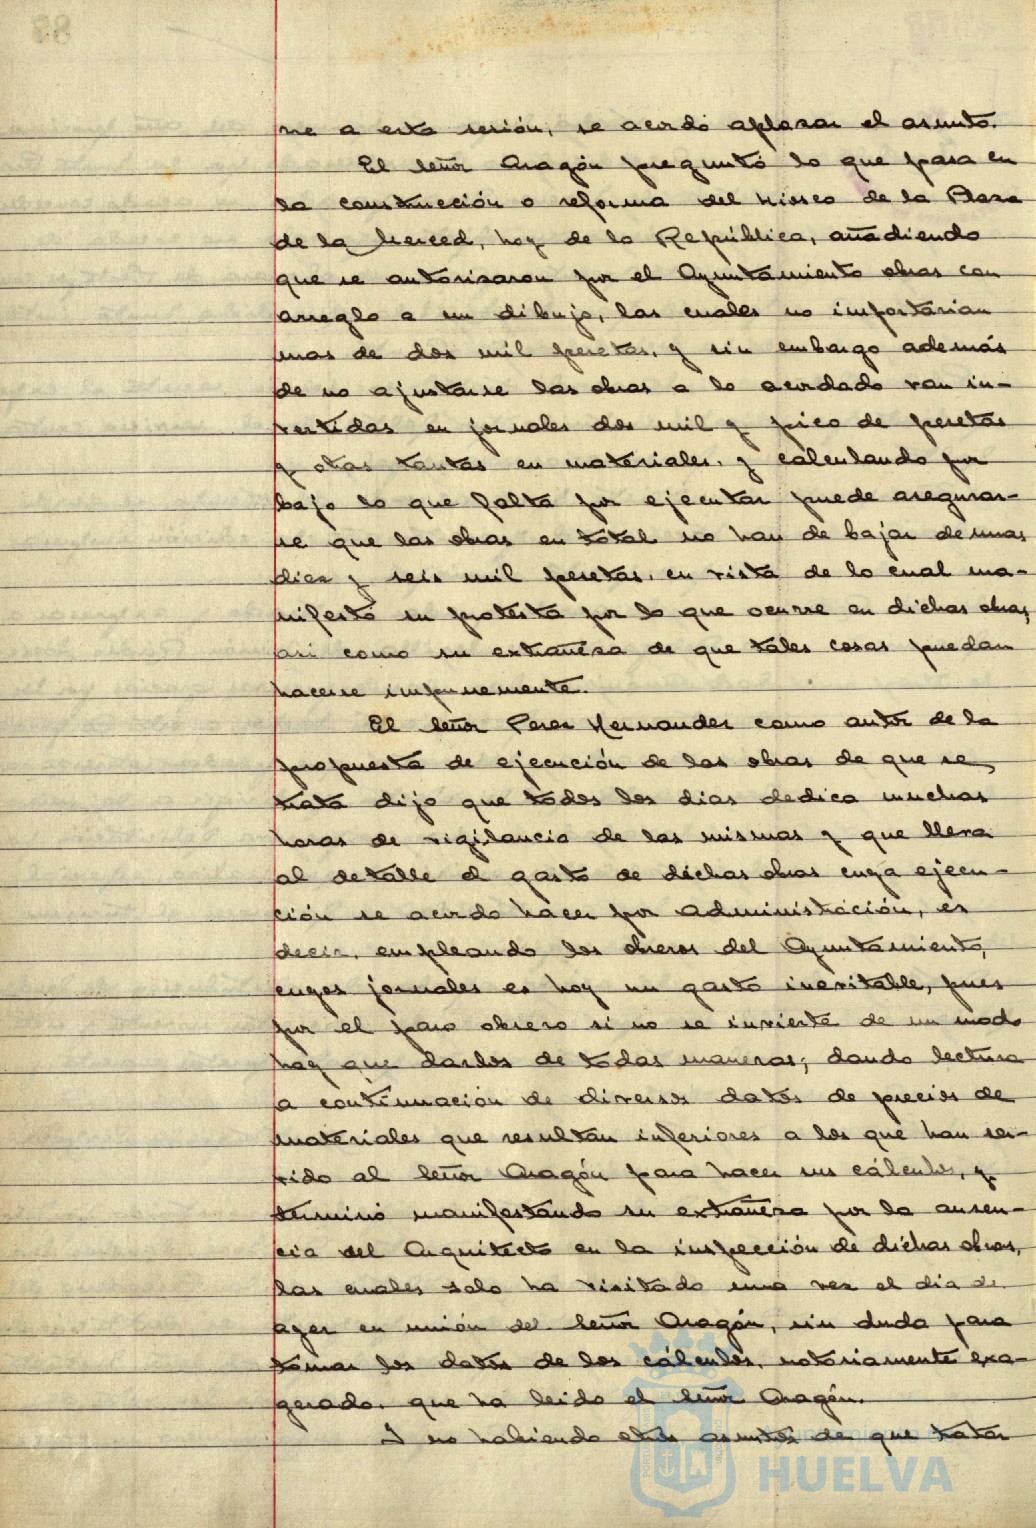 rre a esta sesión, se acordó aplazar el asunto.
El señor Aragón preguntó lo que pasa en
la construcción o reforma del kiosco de la Plaza
de la Merced, hoy de la República, añadiendo
que se autorizaron por el Ayuntamiento obras con
arreglo a un dibujo, las cuales no importarian
mas de dos mil pesetas, y sin embargo además
de no ajustarse las obras a lo acordado van in-
vertidas en jornales dos mil y pico de pesetas
y otras tantas en materiales, y calculando por
bajo lo que falta por ejecutar puede asegurar-
se que las obras en total no han de bajar de unas
diez y seis mil pesetas, en vista de lo cual ma-
nifestó su protesta por lo que ocurre en dichas obras,
asi como su extrañeza de que tales cosas puedan
hacerse impunemente.
El señor Perez Hernandez como autor de la
propuesta de ejecución de las obras de que se
trata dijo que todos los dias dedica muchas
horas de vigilancia de las mismas y que lleva
al detalle el gasto de dichas obras cuya ejecu-
ción se acordo hacer por administración, es
decir, empleando los obreros del Ayuntamiento,
cuyos jornales es hoy un gasto inevitable, pues
por el paro obrero si no se invierte de un modo
hay que darlos de todas maneras; dando lectura
a continuación de diversos datos de precios de
materiales que resultan inferiores a los que han ser-
vido al señor Aragón para hacer sus cálculos, y
terminó manifestando su extrañeza por la ausen-
cia del Arquitecto en la inspección de dichas obras,
las cuales solo ha visitado una vez el dia de
ayer en unión del señor Aragón, sin duda para
tomar los datos de los cálculos, notoriamente exa-
gerado, que ha leido el señor Aragón.
Y no habiendo otros asuntos de que tratar
HUELVA